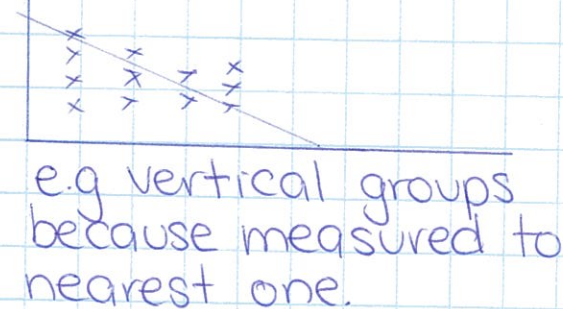 e.g vertical groups
because measured to
nearest one.